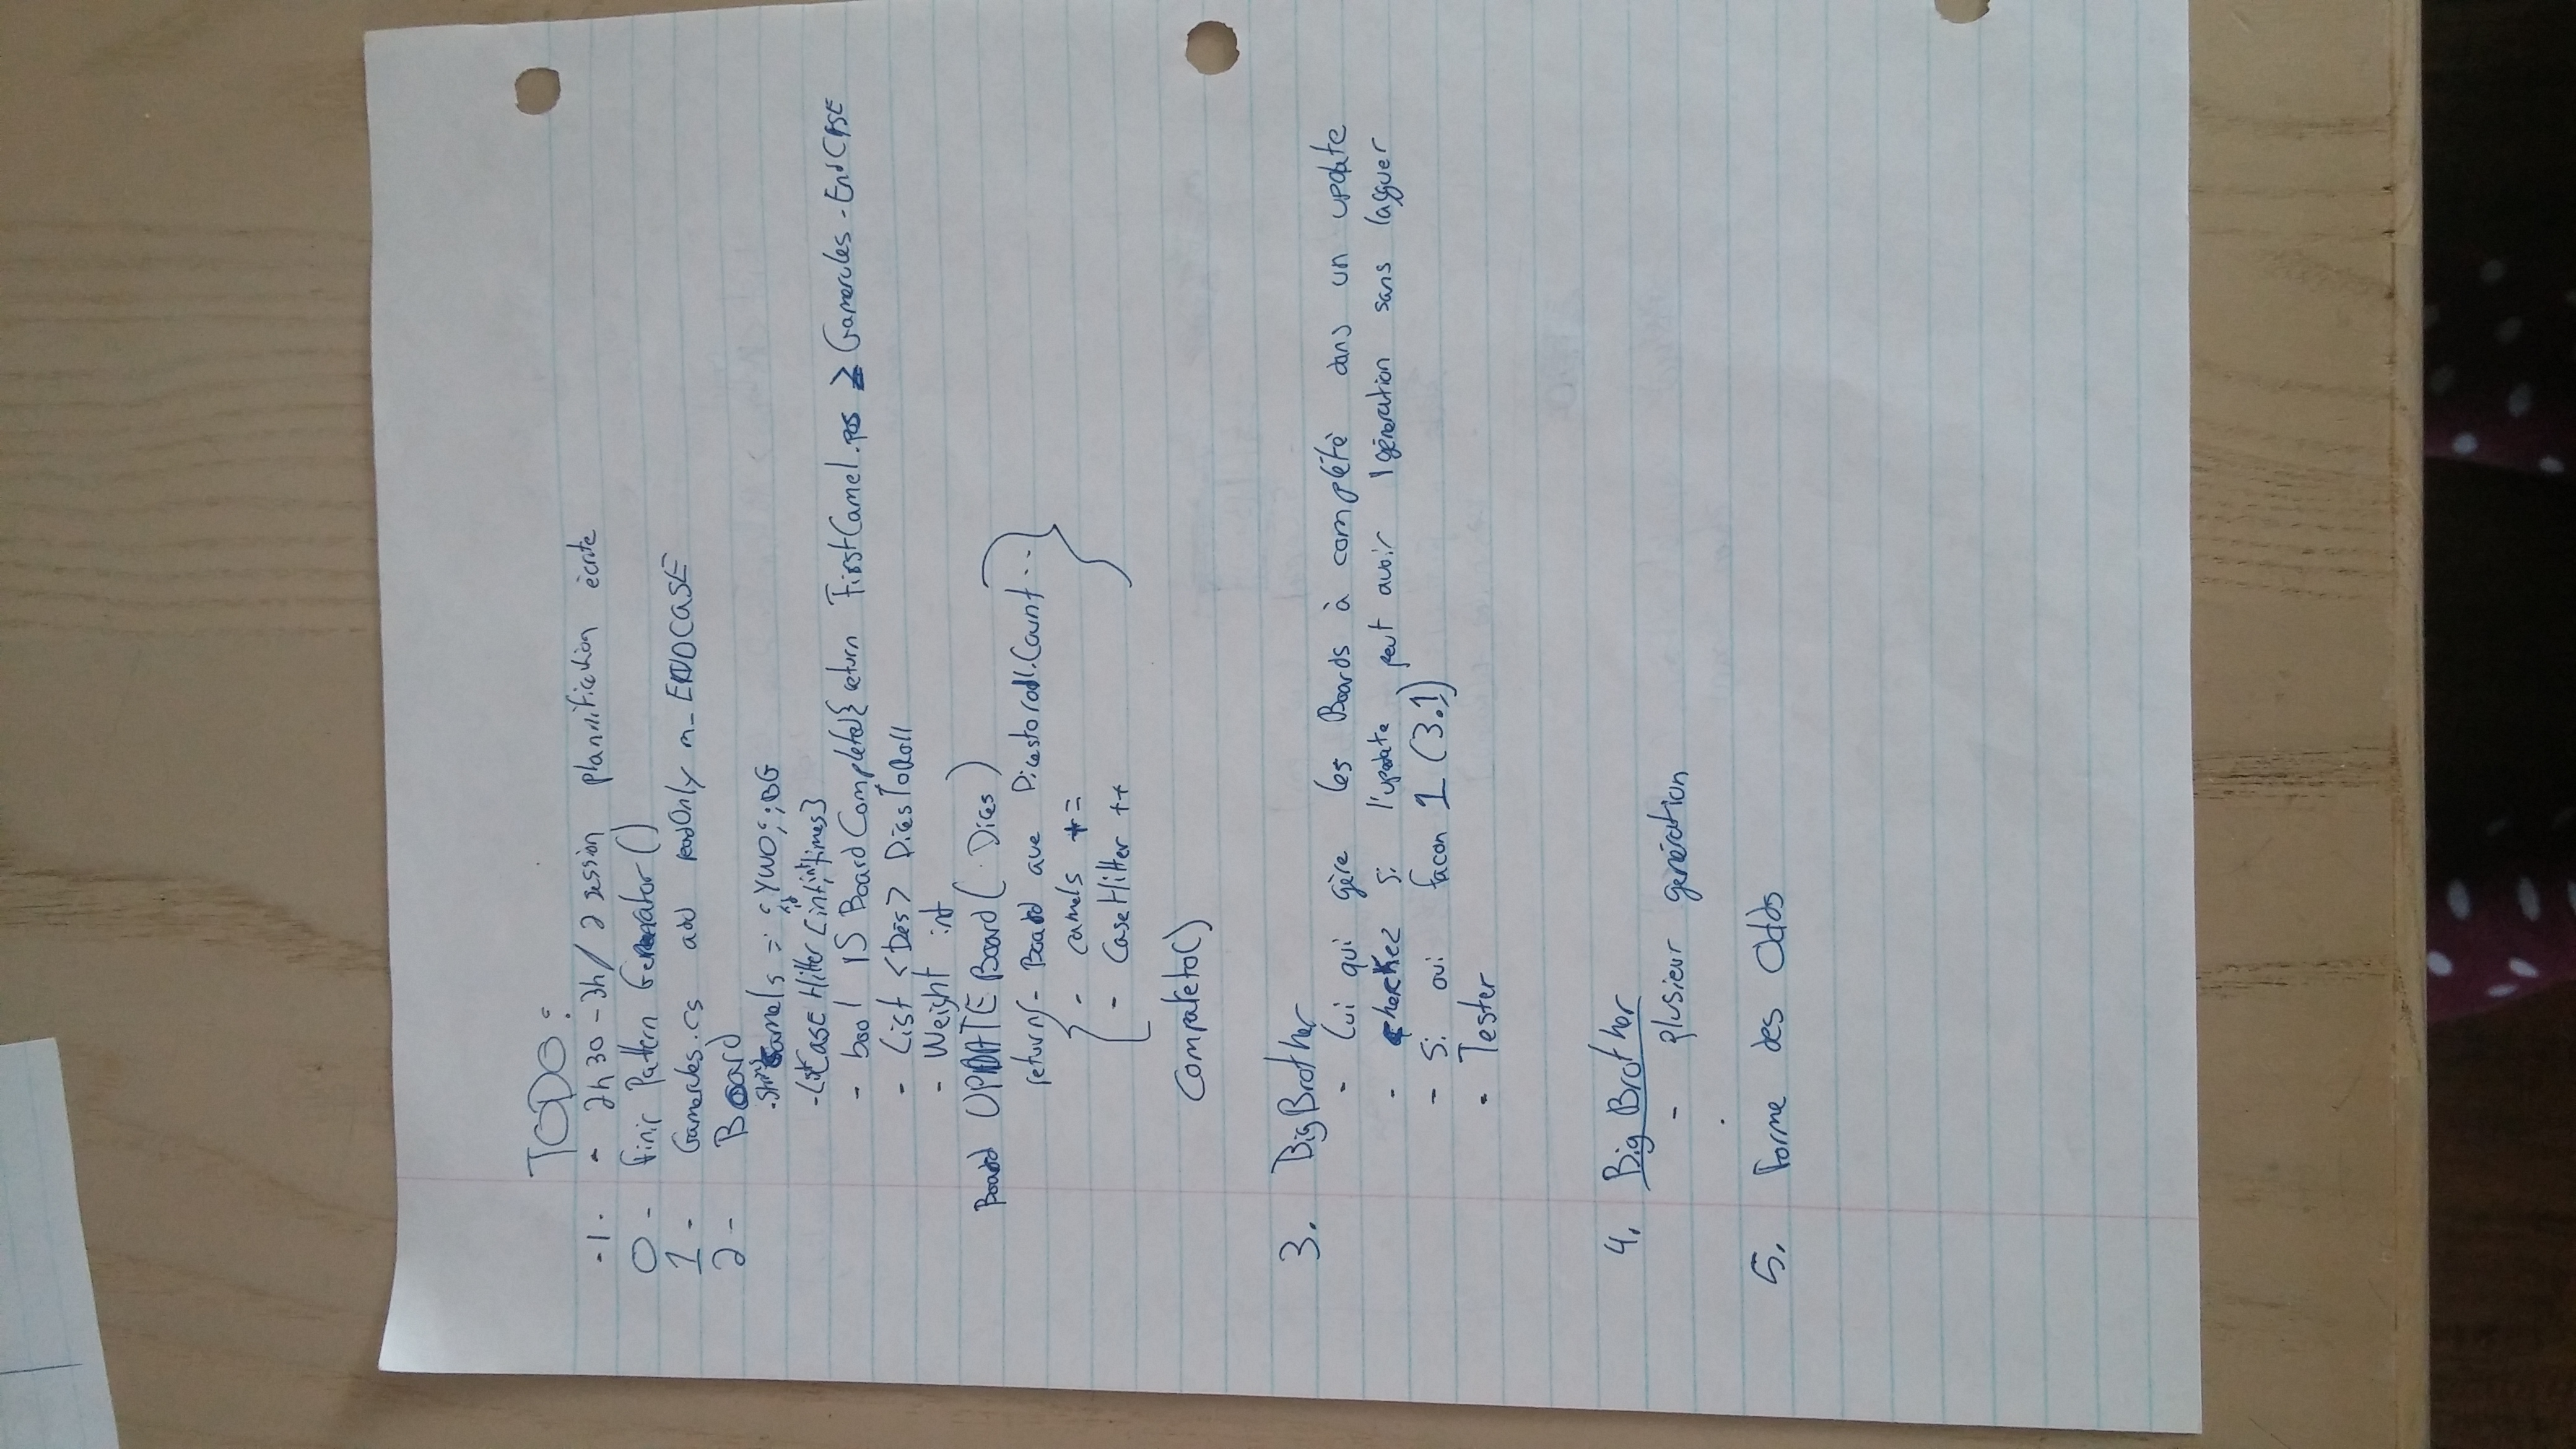 TODO:
-1. - 2h30 - 3h / 2 session plannification écrite
0 - finir Pattern Generator()
1 - Gamerules.cs add readOnly m_ENDCASE
2 - Board
- String Camels = ;YWO;;BG
id
- List CaseHitter [int, int times]
- bool IS BoardComplete{ return FirstCamel.pos ≥ Gamerules-EndCASE
- List <Dés> DicesToRoll
- Weight int
Board UPDATE Board( Dices )
return - Board ave Dicestoroll.Count --
- camels +=
- CaseHitter ++
Compareto()
3. BigBrother
- lui qui gère les Boards à complété dans un update
- cherchez si l'update peut avoir 1 géneration sans lagguer
- Si oui facon 1 (3.1)
- Tester
4. Big Brother
- plusieur genération
5. Forme des Odds